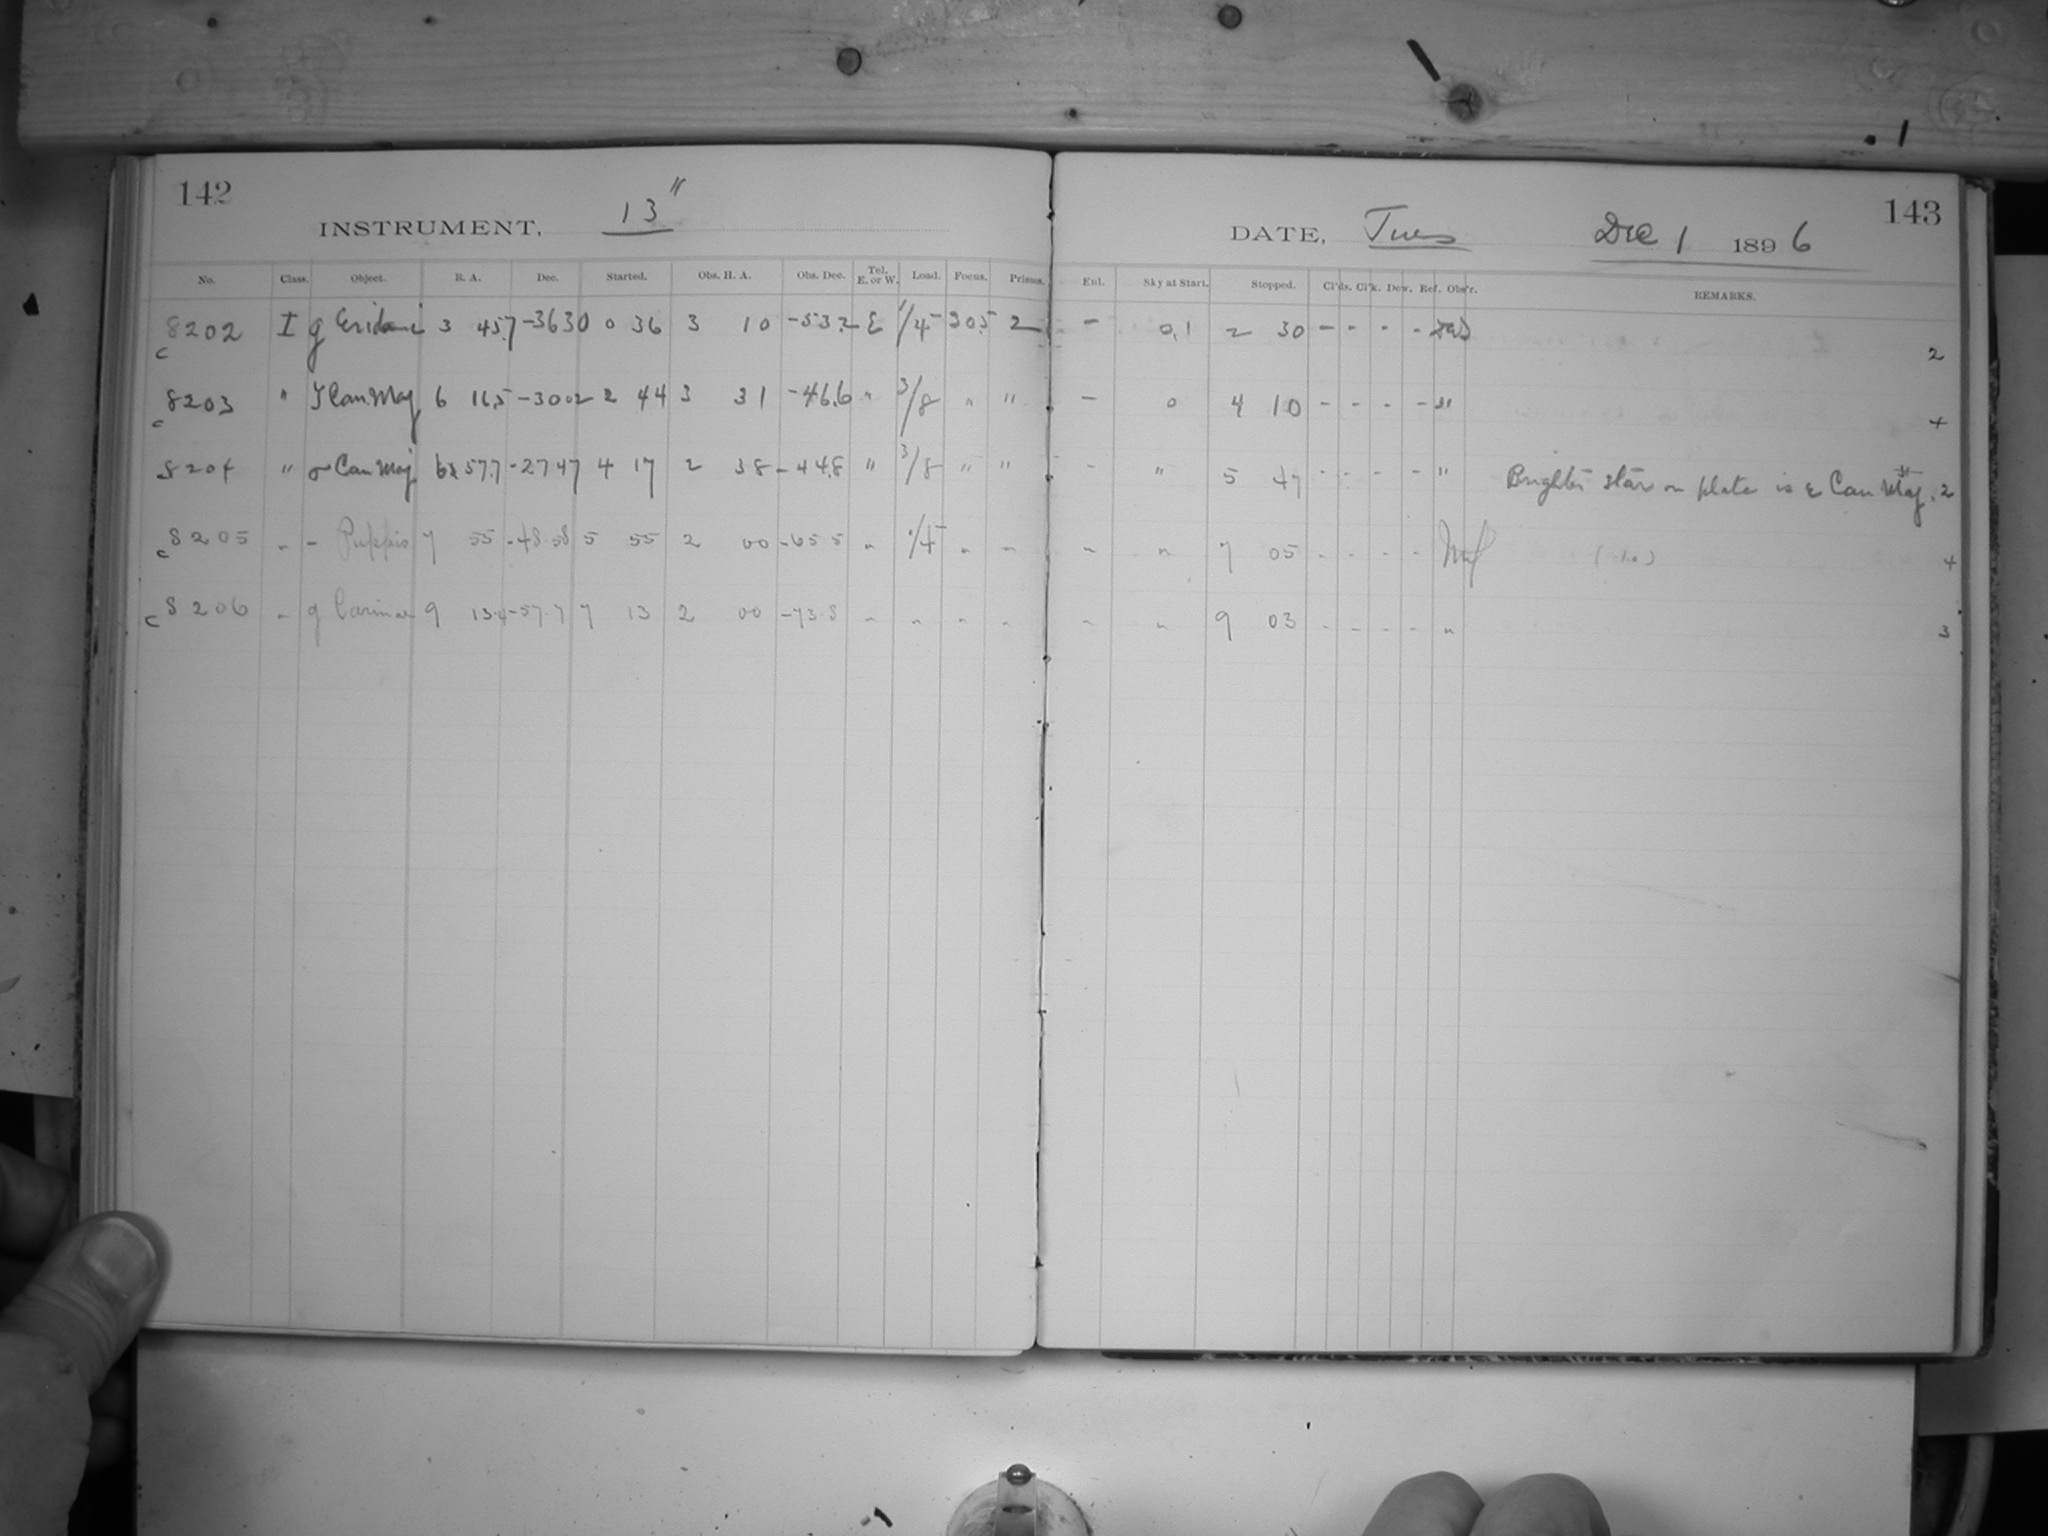 142
INSTRUMENT, 13"
No. Class. Object. R. A. Dec. Started. Obs. H. A. Obs. Dec. Tel. E. or W. Load. Focus. Prisms.
c 8202 I g Eridani 3 45.7 -36 30 0 36 3 10 -53.2 E 1/45 30.5 2
c 8203 " ζ Can. Maj 6 16.5 -30 02 2 44 3 31 -46.6 " 3/8 " "
8204 " σ Can Maj 6 57.7 -27 47 4 17 2 38 -44.8 " 3/8 " "
c 8205 " - Puppis 7 55 -48.58 5 55 2 00 -65 5 " 1/45 " "
c 8206 " g Carinae 9 13.4 -57.7 7 13 2 00 -73.8 " " " "
143
DATE, Tues Dec 1 1896
Enl. Sky at Start. Stopped. Cl'ds. Cl'k. Dew. Ref. Obs'r. REMARKS.
- 0.1 2 30 - - - - 2
- 0 4 10 - - - - " 4
- " 5 47 - - - - " Brighter star on plate is ε Can Maj. 2
" " 7 05 - - - - 4
" " 9 03 - - - - " 3